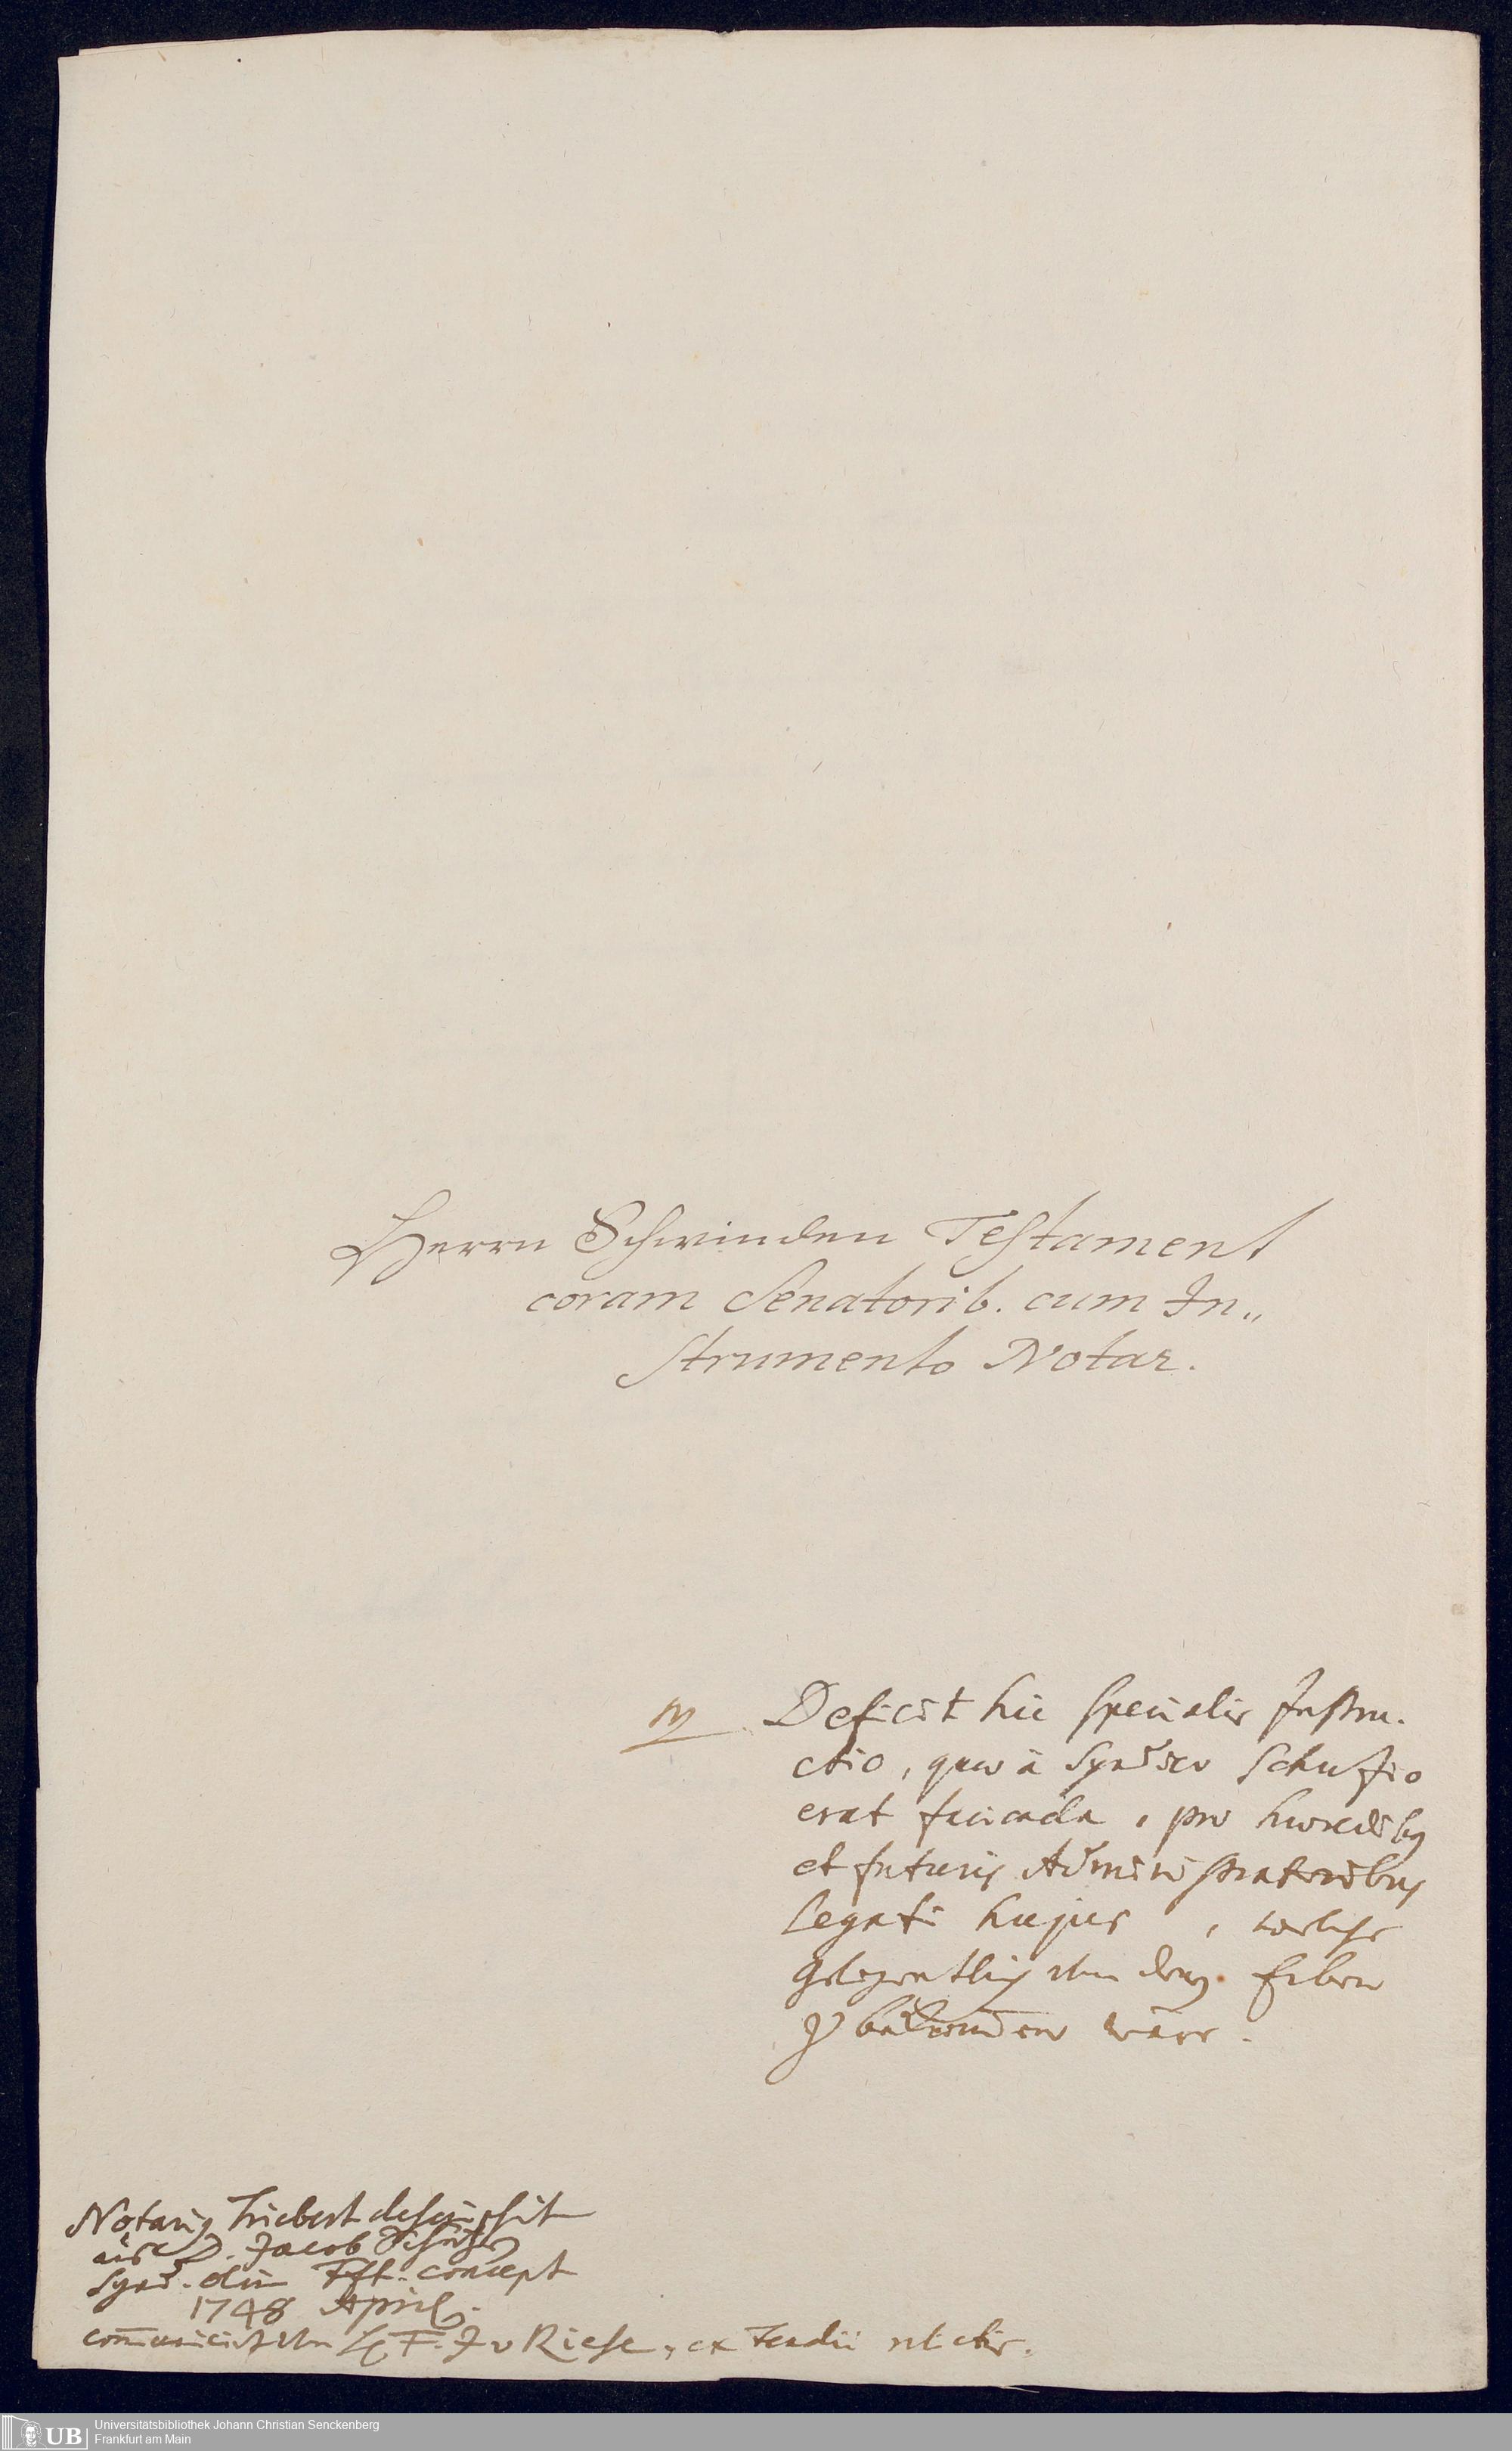 Herrn Schwinden Testament
coram Senatorib. cum In„
strumento Notar.
Deficit hic specialis Instru-
ctio, quae à Syndico Schuzio
erat facienda, pro haeredibus
et futuris Administratoribus
legati hujus, welche
gelegentlich von den Erben
zu bekommen wäre.
Notarius descripsit
aus D. Jacob Schüz
Synd. olim Fft. concept
1748 April.
communicirt von H. F. J. v Riese, ex relictis.
Universitätsbibliothek Johann Christian Senckenberg
UB Frankfurt am Main